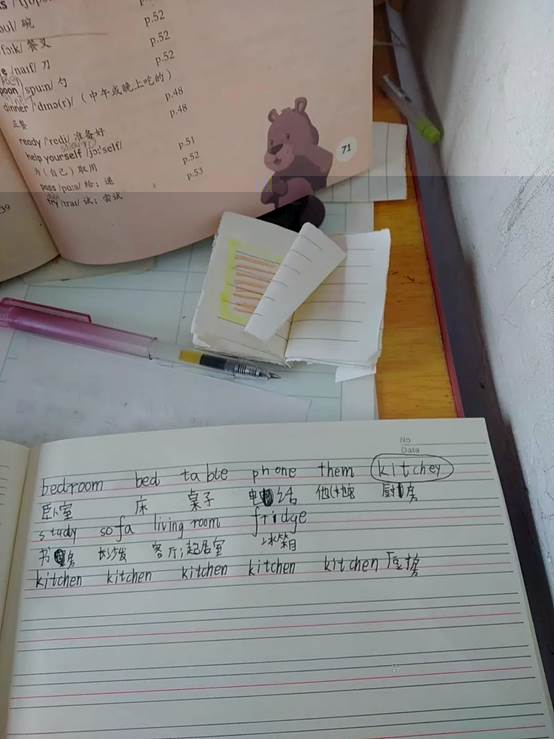 / 碗 p.52
/fɔ:k/ 餐叉 p.52
/naɪf/ 刀 p.52
spoon /spu:n/ 勺 p.52
dinner /'dɪnə(r)/ (中午或晚上吃的) p.48
正餐
ready /'redi/ 准备好 p.48
help yourself /jɔ:'self/ p.51
为(自己)取用
pass /pɑ:s/ 给;递 p.52
try /traɪ/ 试;尝试 p.53
71
39
No
Date
bedroom bed table phone them kitchey
卧室 床 桌子 电话 厨房
study sofa living room fridge
书房 沙发 客厅;起居室 冰箱
kitchen kitchen kitchen kitchen kitchen 厨房